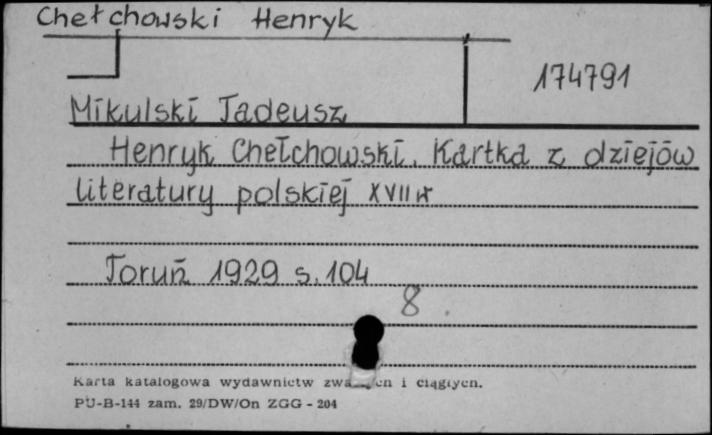 Chełchowski Henryk
174791
Mikulski Tadeusz
Henryk Chełchowski. Kartka z dziejów
literatury polskiej XVII w
Toruń 1929 s. 104
8
Karta katalogowa wydawnictw i ciągłych.
PU-B-144 zam. 29/DW/On ZGG - 204